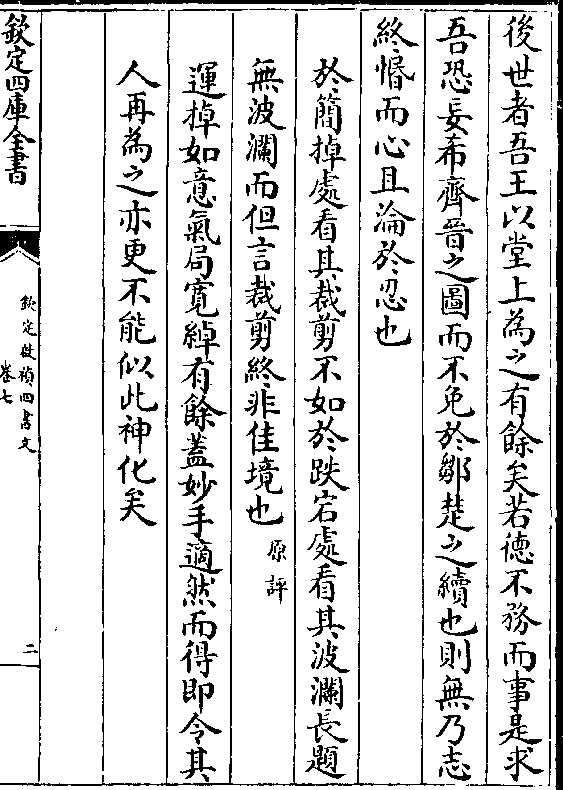 後世者吾王以堂上為之有餘矣若德不務而事是求
吾恐妄希齊晉之圖而不免於鄒楚之續也則無乃志
終惛而心且淪於忍也
於簡掉處看其裁剪不如於跌宕處看其波瀾長題
無波瀾而但言裁剪終非佳境也原評
運掉如意氣局寬綽有餘蓋妙手適然而得即令其
人再為之亦更不能似此神化矣
欽定四庫全書
欽定啟禎四書文
卷七
二